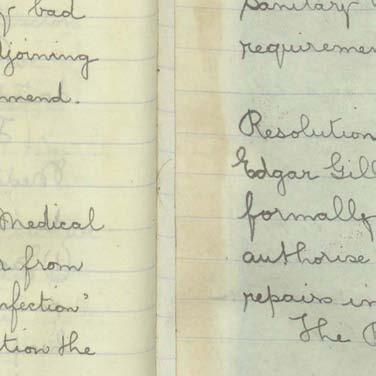 bad
djoining
mmend.
Medical
from
nfection"
tion the
Sanitary
requiremen
Resolution
Edgar Gill
formally
authorise
repairs in
The